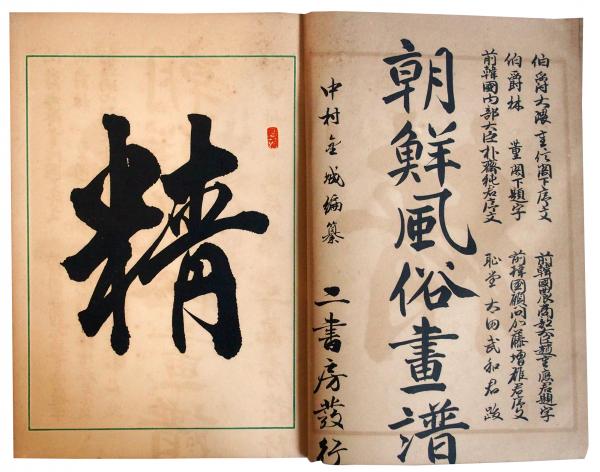 伯爵大隈重信閣下序文
伯爵林董閣下題字
前韓國內部大臣朴齊純君序文
前韓國農商部大臣趙重應君題字
前韓國顧問加藤增雄君序文
恥堂太田武和君跋
朝鮮風俗畫譜
中村金城編纂
二書房發行
精